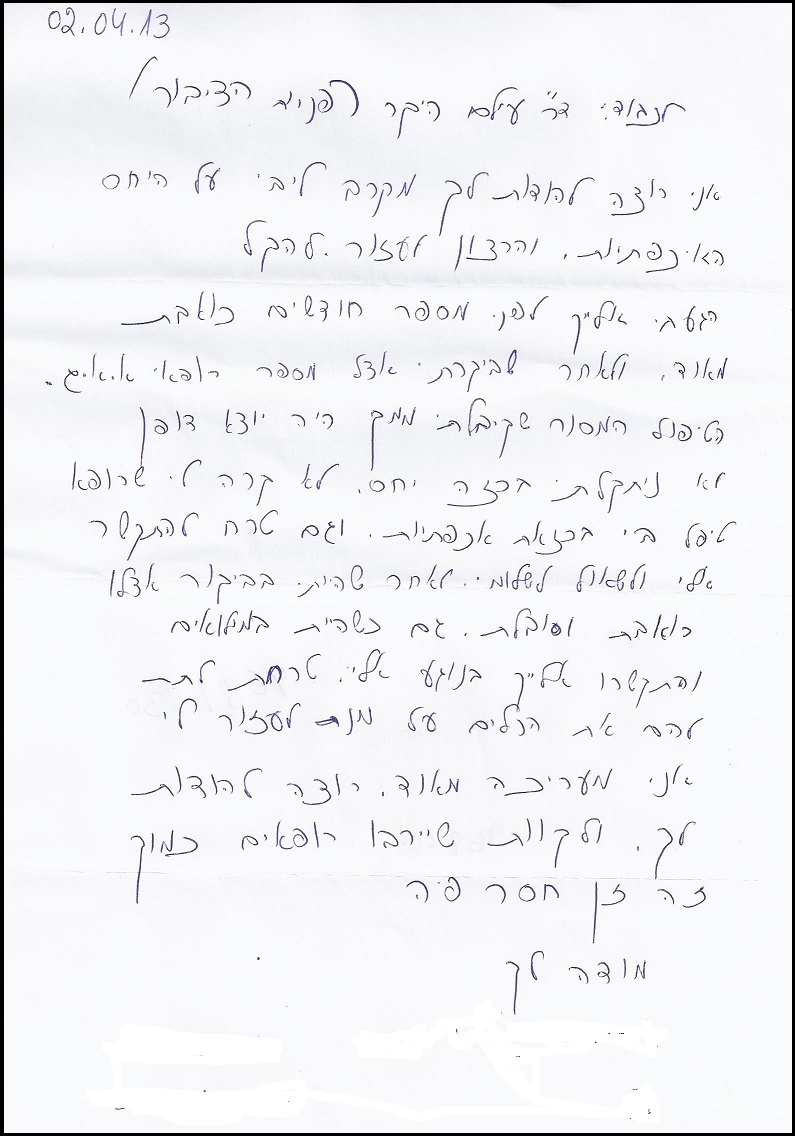 02.04.13
לכבוד: ד"ר עילם היקר (פניות הציבור)
אני רוצה להודות לך מקרב ליבי על היחס
האיכפתיות, והרצון לעזור. להקל
הגעתי אליך לפני מספר חודשים כואבת
מאוד, ולאחר שביקרתי אצל מספר רופאי א.א.ג.
הטיפול המסור שקיבלתי ממך היה יוצא דופן
לא ניתקלתי בכזה יחס, לא קרה לי שרופא
טיפל בי בכזאת אכפתיות, וגם טרח להתקשר
אלי ולשאול לשלומי. לאחר שהייתי בביקור אצלו
כואבת וסובלת. גם כשהיית במילואים
והתקשרו אליך בנוגע אלי, טרחת לתת
להם את הכלים על מנת לעזור לי
אני מעריכה מאוד, רוצה להודות
לך, ולקוות שיירבו רופאים כמוך
זה זן חסר פה
מודה לך